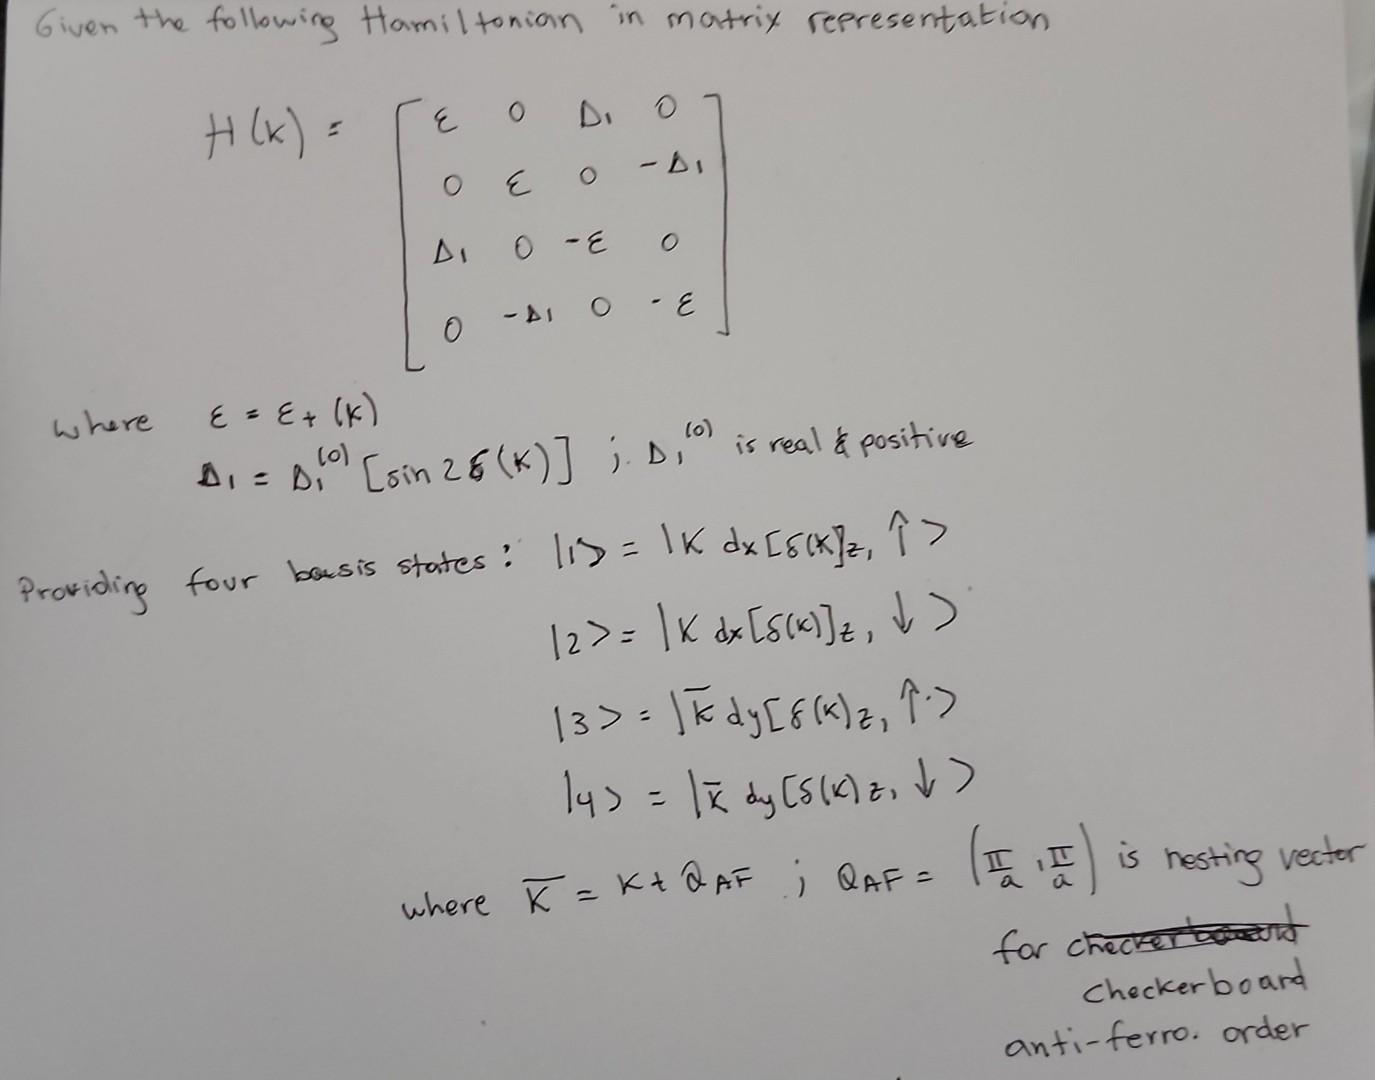 Given the following Hamiltonian in matrix representation
H(k) = [ ε 0 Δ₁ 0
0 ε 0 -Δ₁
Δ₁ 0 -ε 0
0 -Δ₁ 0 -ε ]
where ε = ε₊(k)
Δ₁ = Δ₁⁽⁰⁾ [sin 2δ(k)] ; Δ₁⁽⁰⁾ is real & positive
Providing four basis states: |1> = |K dx[δ(k)]z, ↑>
|2> = |K dx[δ(k)]z, ↓>
|3> = |K̄ dy[δ(k)z, ↑>
|4> = |K̄ dy[δ(k)z, ↓>
where K̄ = K + QAF ; QAF = (π/a, π/a) is nesting vector
for
checkerboard
anti-ferro. order